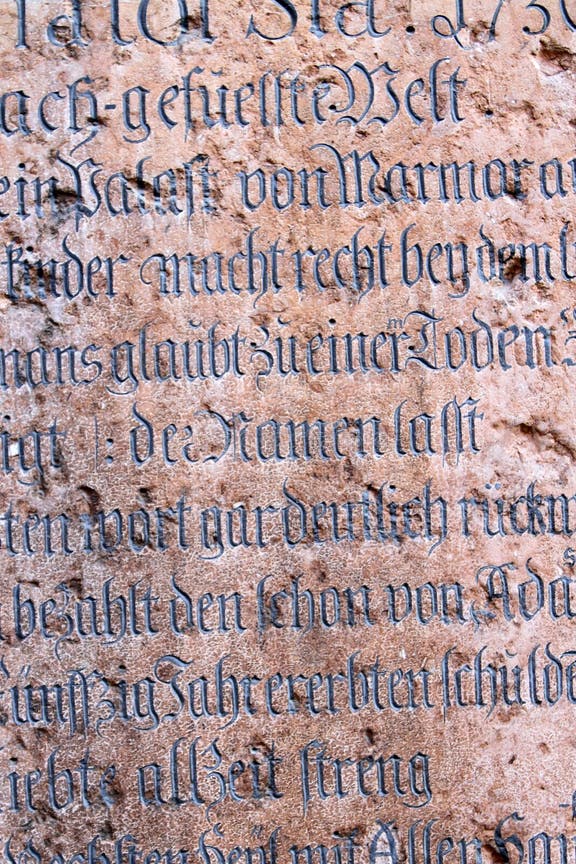 ach-gefüellte Welt.
ein Palast von Marmar
kinder macht recht bey dem
mans glaubt zu einer Toden
igt |: der Namen lasst
ten wort gar deutlich rückm
bezahlt den schon von Ada
fünffzig Jahr ererbten schulde
iebte allzeit streng